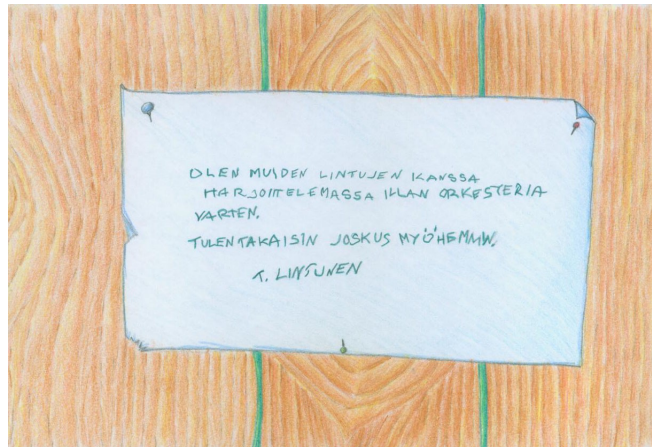 OLEN MUIDEN LINTUJEN KANSSA
HARJOITTELEMASSA ILLAN ORKESTERIA
VARTEN.
TULEN TAKAISIN JOSKUS MYÖHEMMIN.
T. LINTUNEN